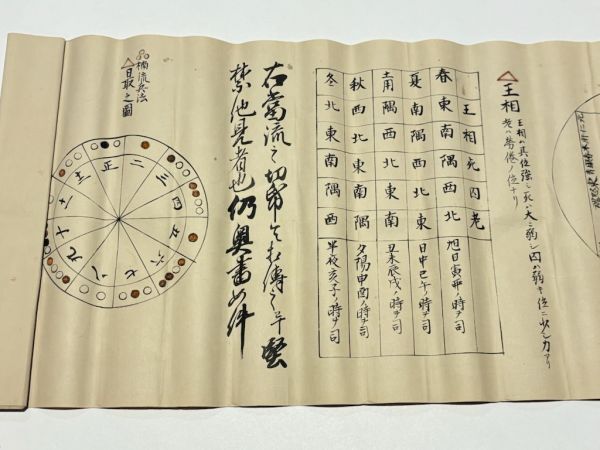 王相
王相ハ其位強シ死ハ大ニ弱シ囚ハ弱キ位ニ少シ力アリ
老ハ労倦ノ位ナリ
王相死囚老
春東南隅西北旭日寅卯ノ時ヲ司
夏南隅西北東日中巳午ノ時ヲ司
土用隅西北東南丑未辰戌ノ時ヲ司
秋西北東南隅夕陽申酉ノ時ヲ司
冬北東南隅西半夜亥子ノ時ヲ司
右當流之切帋令相傳之畢堅
禁他見者也仍奥書如件
楠流兵法
日取之圖
正
二
三
四
五
六
七
八
九
十
十一
十二